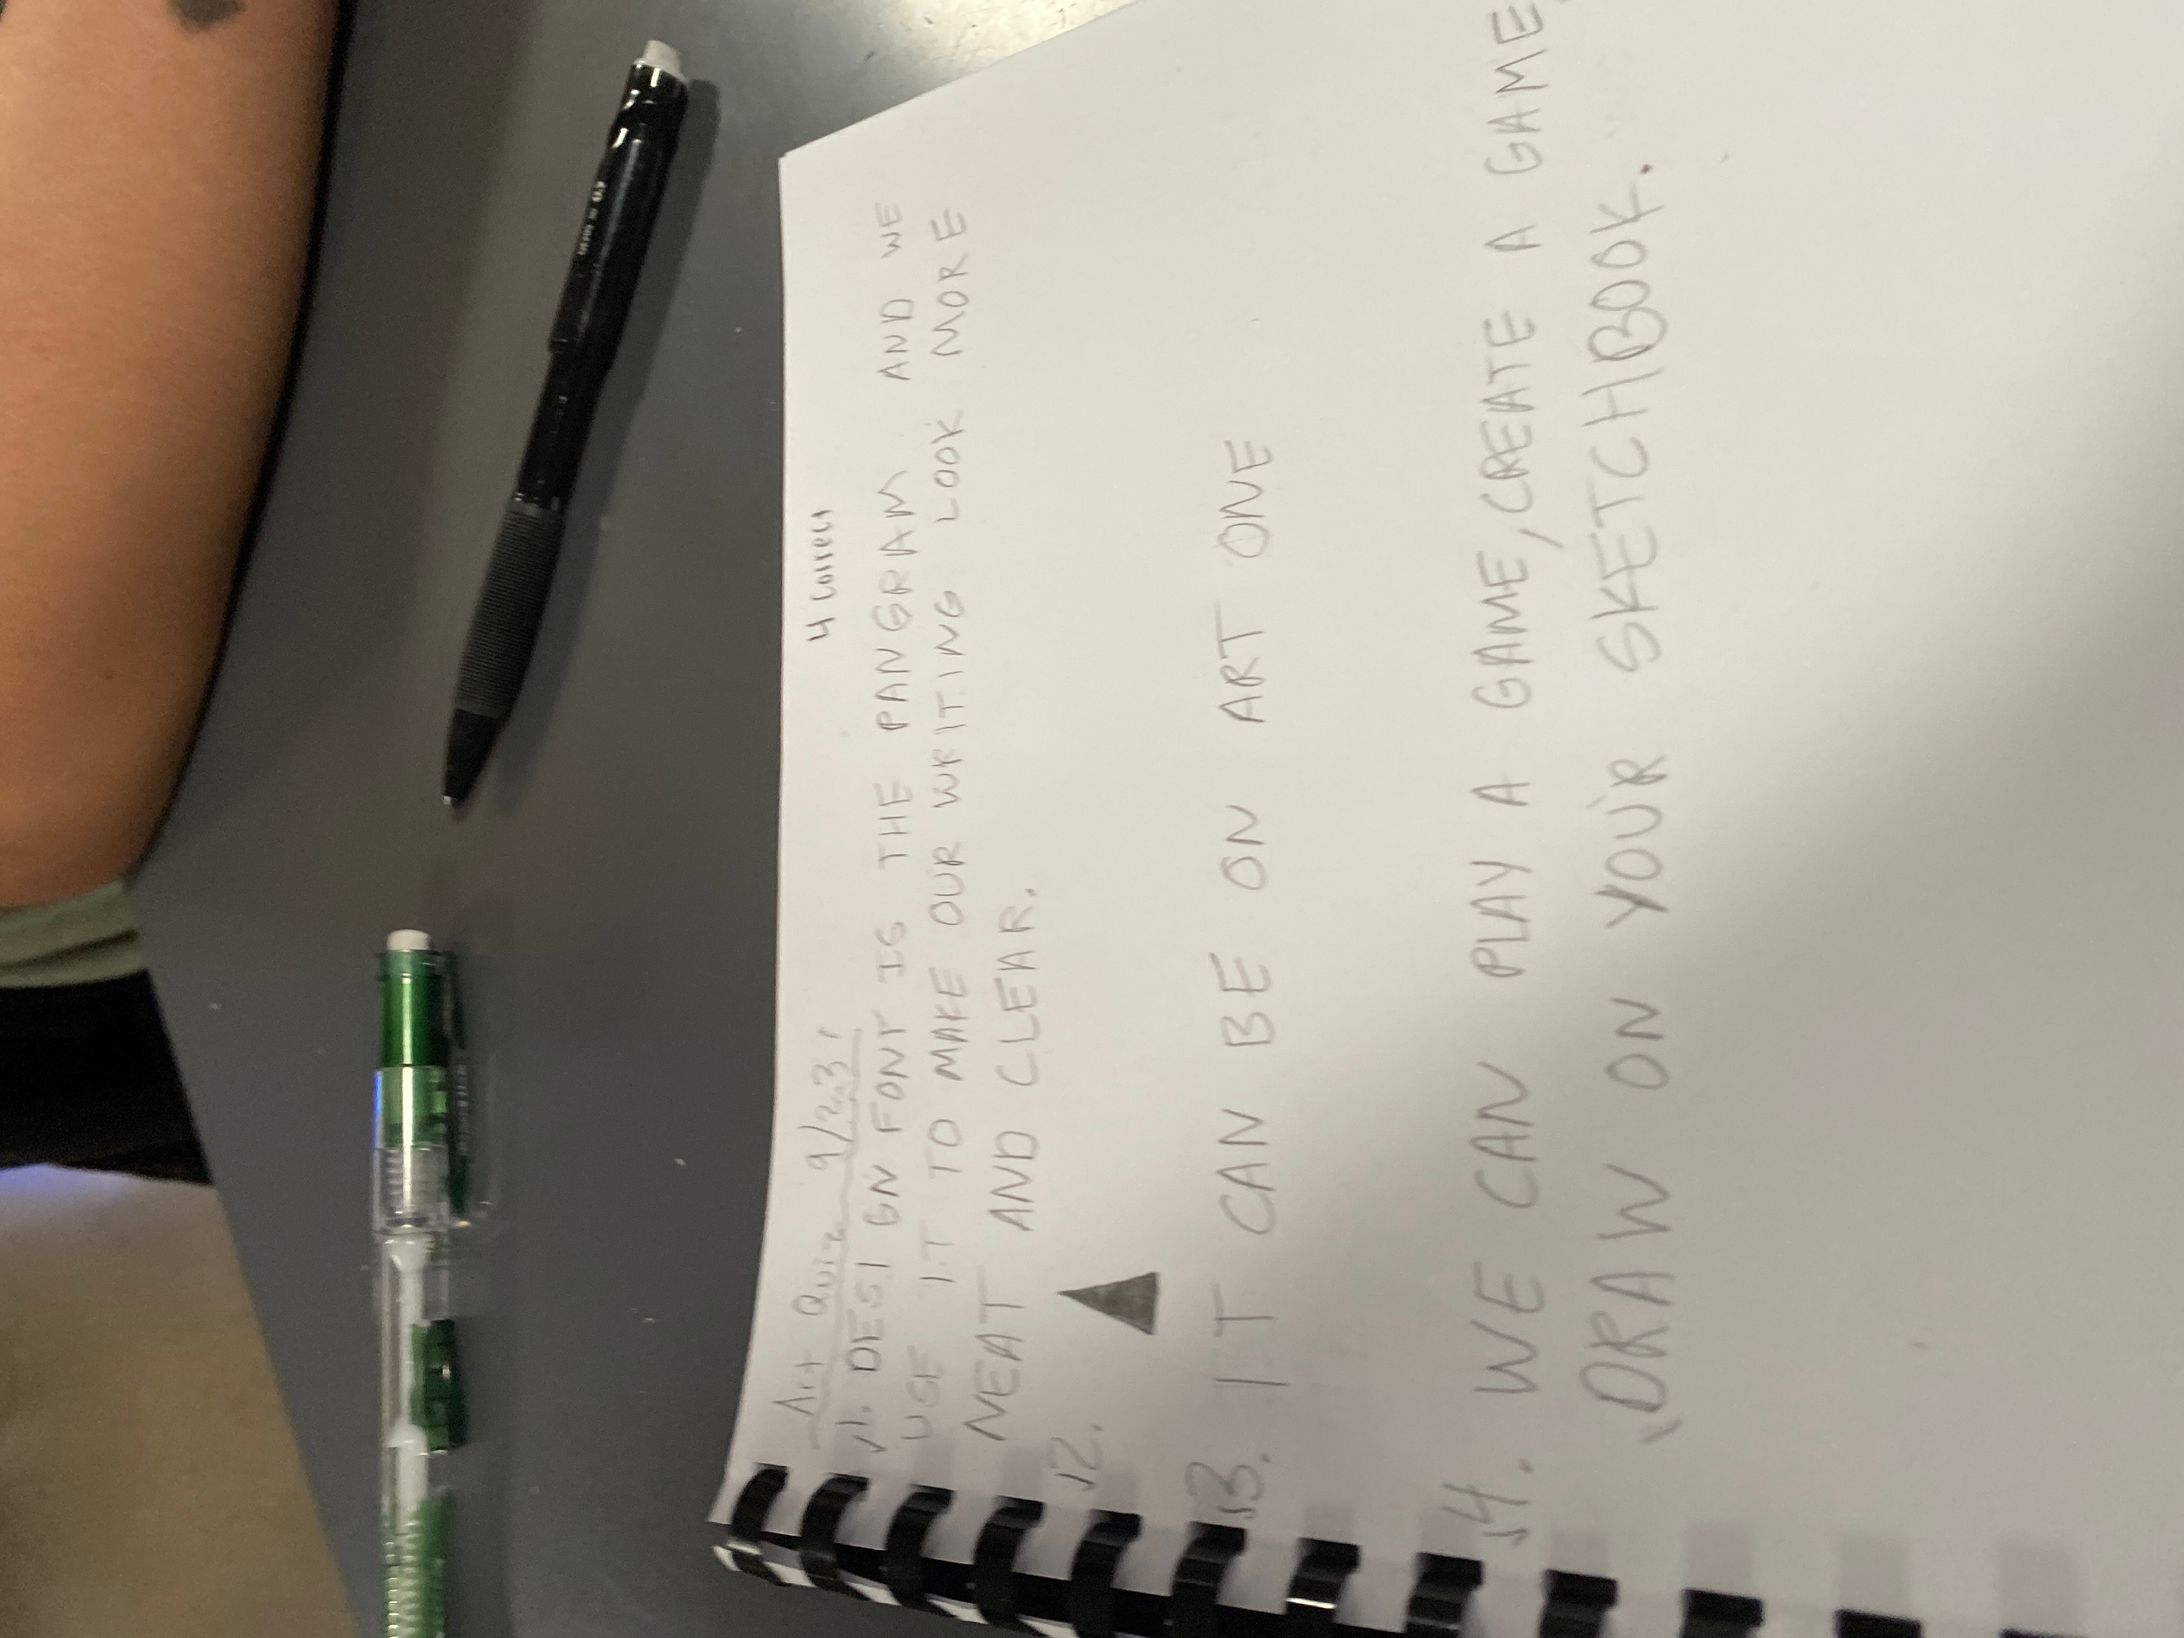 Art Quiz 9/23
4 correct
√1. DESIGN FONT IS THE PANGRAM AND WE
USE IT TO MAKE OUR WRITING LOOK MORE
NEAT AND CLEAR.
√2.
√3. IT CAN BE ON ART ONE
√4. WE CAN PLAY A GAME, CREATE A GAME,
DRAW ON YOUR SKETCHBOOK.
0.5